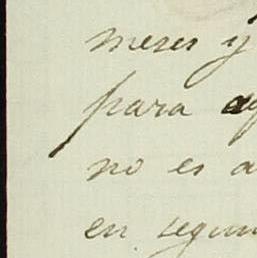 meses y
para
no es a
en segun